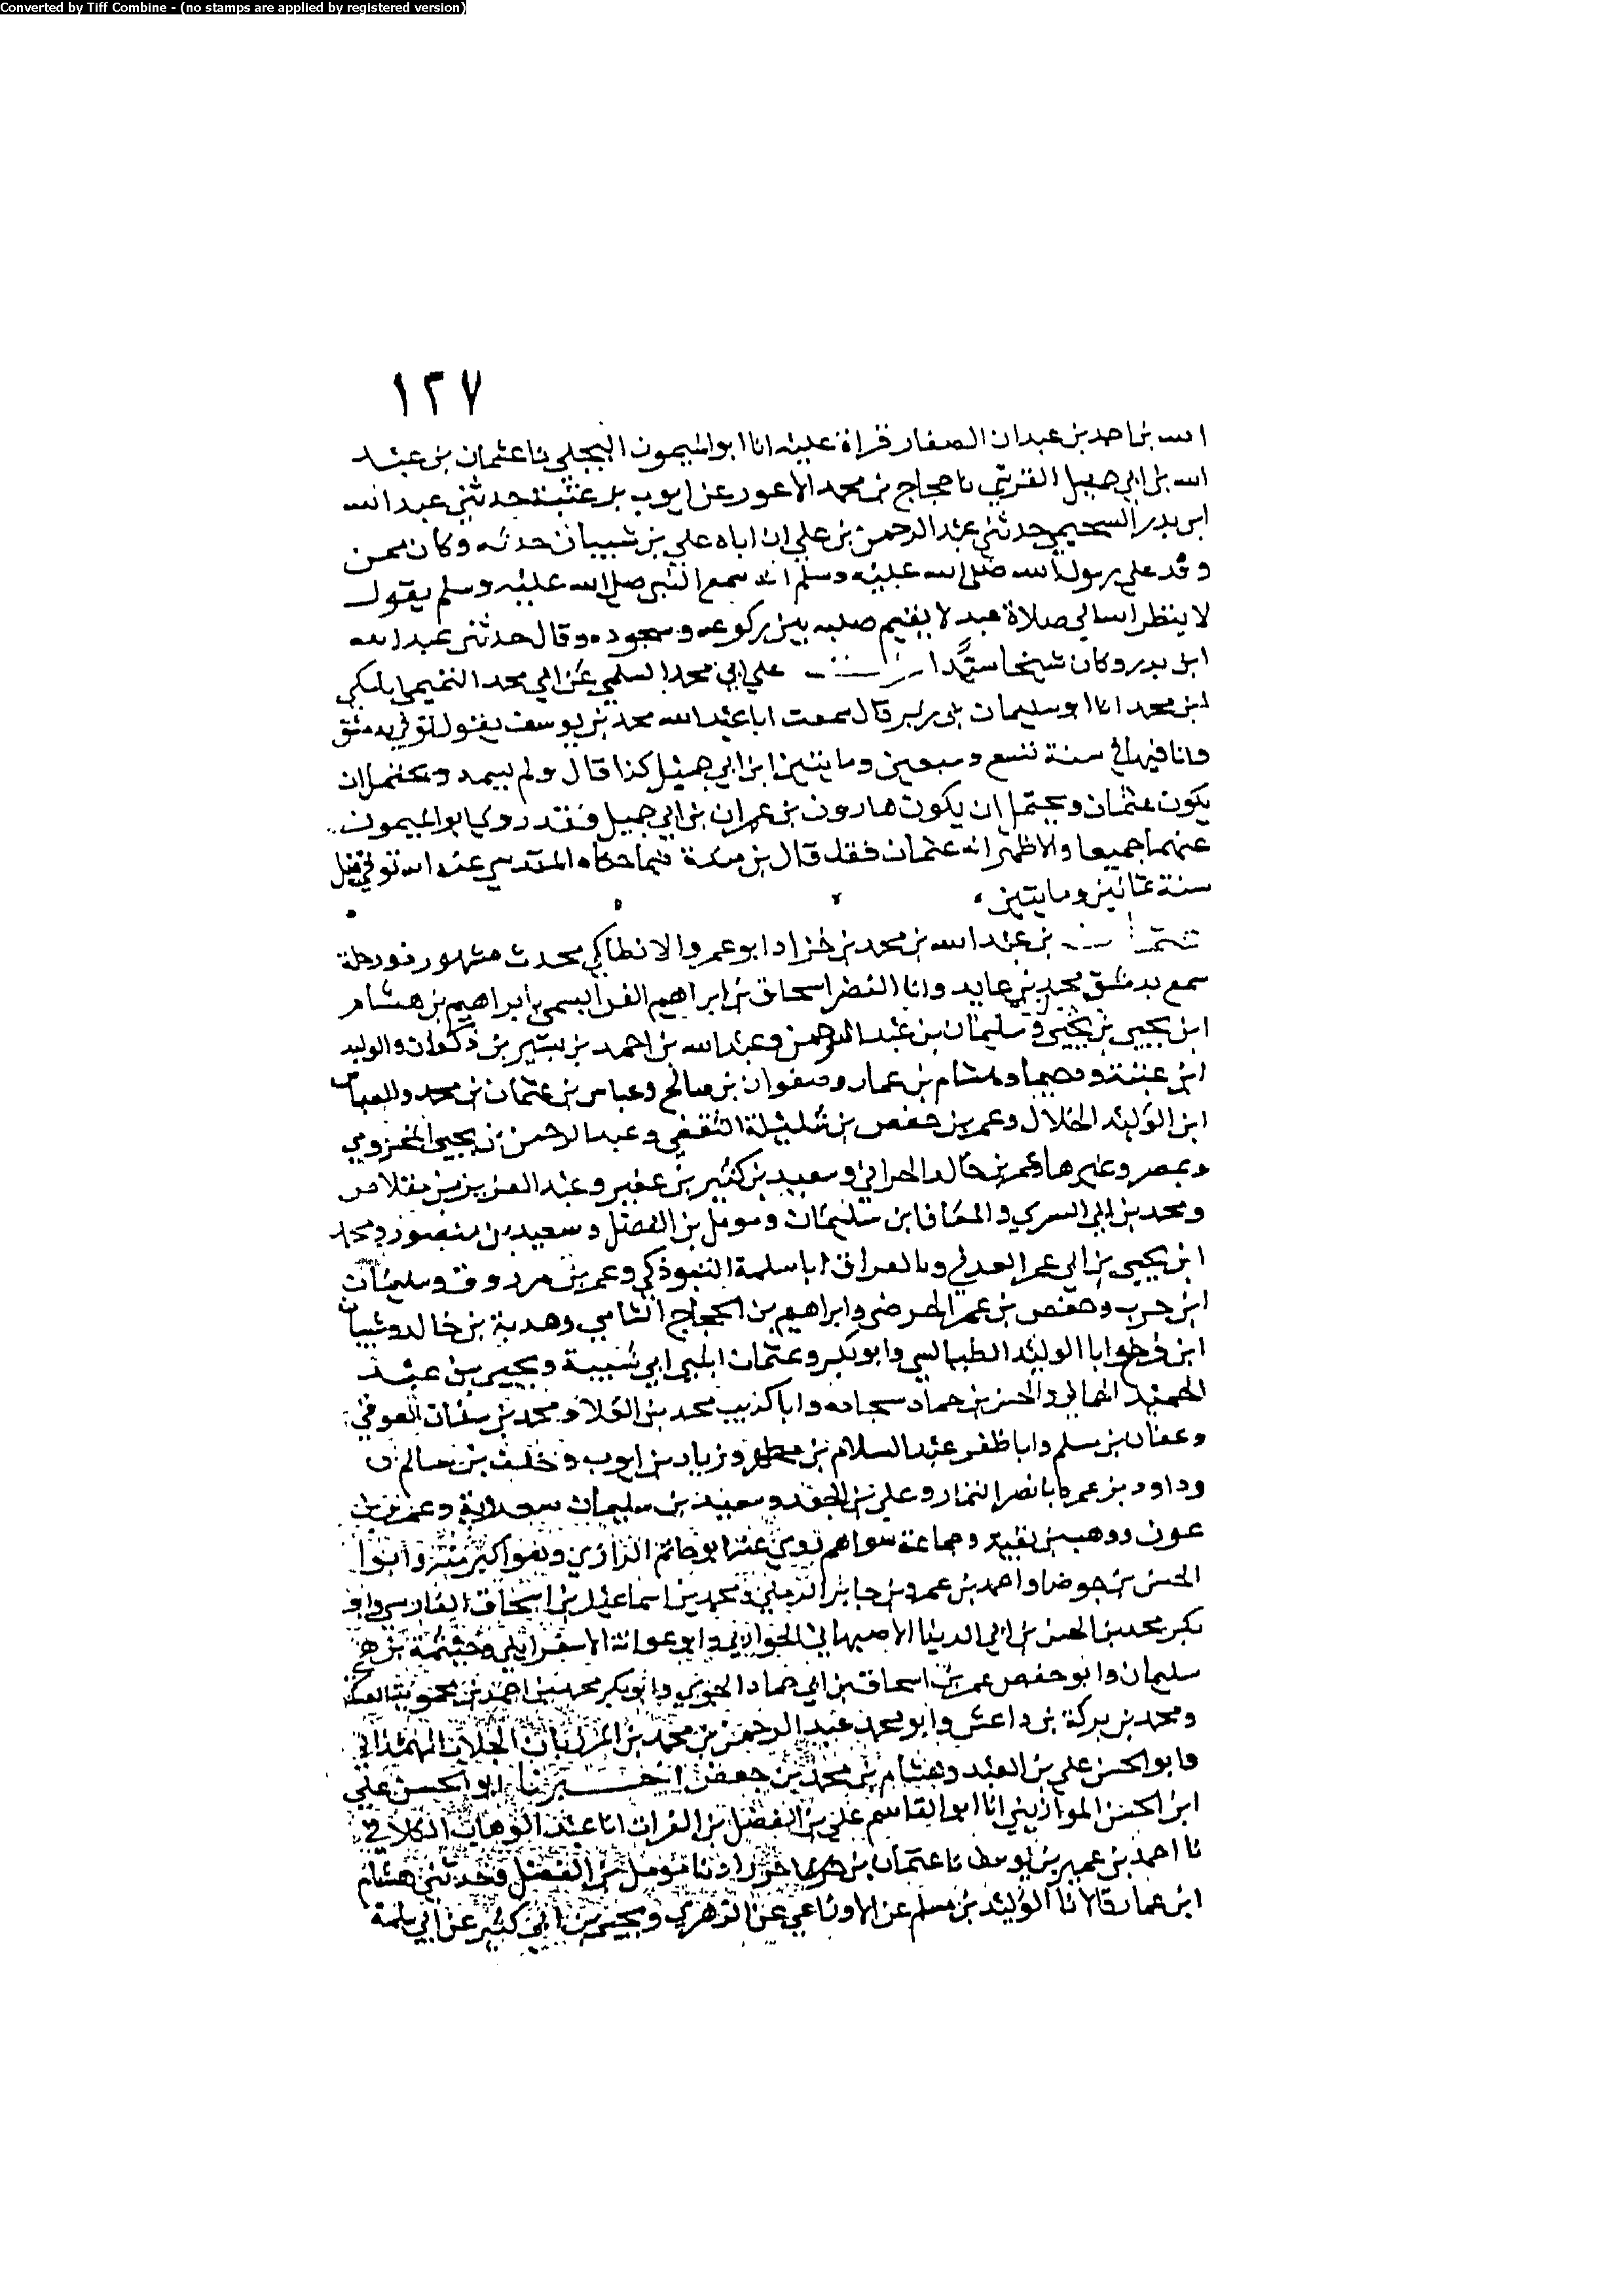 Converted by Tiff Combine - (no stamps are applied by registered version)
١٢٧
الله بن احمد بن عبدان الصفار قراة عليه انا ابو الميمون البجلي نا عثمان بن عبد
الله بن ابي جميل القرشي نا حجاج بن محمد الاعور عن ايوب بن عتبة حدثني عبد الله
ابن بدر السحيمي حدثني عبد الرحمن بن علي ان اباه علي بن شيبان حدثه وكان ممن
وفد علي رسول الله صلى الله عليه وسلم انه سمع النبي صلى الله عليه وسلم يقول
لا ينظر الله الي صلاة عبد لا يقيم صلبه بين ركوعه وسجوده وقال حدثني عبد الله
ابن بدر وكان شيخا علي ابي محمد السلمي عن ابي محمد التميمي انا مكي
ابن محمد انا ابو سليمان بن زبر قال سمعت ابا عبد الله محمد بن يوسف يقول توفي بدمشق
وانا فيها في سنة تسع وسبعين ومايتين ابن ابي جميل كذا قال ولم يسمه ويحتمل ان
يكون عثمان ويحتمل ان يكون هارون بن عمران بن ابي جميل فقد روي ابو الميمون
عنهما جميعا والاظهر انه عثمان فقد قال بن مندة فيما حكاه المقدسي عنه انه توفي قبل
سنة ثمانين ومايتين
عثمان بن عبد الله بن محمد بن خرزاد ابو عمرو الانطاكي محدث مشهور ذو رحلة
سمع بدمشق محمد بن عايد وابا النضر اسحاق بن ابراهيم الفراديسي وابراهيم بن هشام
ابن يحيي بن يحيي وسليمان بن عبد الرحمن وعبد الله بن احمد بن بشير بن ذكوان والوليد
ابن عتبة ودحيما وهشام بن عمار وصفوان بن صالح وعباس بن عثمان بن محمد والعباس
ابن الوليد الخلال وعمر بن حفص بن شليلة الثقفي وعبد الرحمن بن يحيي المخزومي
وبمصر وغيرها عمرو بن خالد الحراني وسعيد بن كثير بن عفير وعبد العزيز بن مقلاص
ومحمد بن ابي السري والمعافا بن سليمان ومومل بن الفضل وسعيد بن منصور ومحمد
ابن يحيي بن ابي عمر العدني وبالعراق ابا سلمة التبوذكي وعمرو بن مرزوق وسليمان
ابن حرب وحفص بن عمر الحوضي وابراهيم بن الحجاج الشامي وهدبة بن خالد وشيبان
ابن فروخ وابا الوليد الطيالسي وابو بكر وعثمان ابني ابي شيبة ويحيي بن عبد
الحميد الحماني والحسن بن حماد سجادة وابا كريب محمد بن العلاء ومحمد بن سنان العوقي
وعفان بن مسلم وابا ظفر عبد السلام بن مطهر وزياد بن ايوب وخلف بن سالم
وداود بن عمر وابا نصر التمار وعلي بن الجعد وسعيد بن سليمان سعدوية وعمرو بن
عون ووهب بن بقية وجماعة سواهم روي عنه ابو حاتم الرازي وهو اكبر منه وابو
الحسن بن جوصا واحمد بن عمرو بن جابر الرملي ومحمد بن اسماعيل بن اسحاق الفارسي وابو
بكر محمد بن الحسن بن ابي الدينا الاصبهاني الجواربي وابو عوانة الاسفرايني وخيثمة بن
سليمان وابو حفص عمر بن اسحاق بن ابي حماد وابو بكر محمد بن احمد بن محموية العسكري
ومحمد بن بركة بن داعس وابو محمد عبد الرحمن بن محمد بن المرزبان الجلاب الهمذاني
وابو الحسن علي بن العبد وهشام بن محمد بن جعفر اخبرنا ابو الحسن علي
ابن الحسن الموازيني انا ابو القاسم علي بن الفضل بن الفرات انا عبد الوهاب الكلابي
نا احمد بن عمير بن يوسف نا عثمان بن خرزاد نا مؤمل بن الفضل وحدثني هشام
ابن عمار قالا نا الوليد بن مسلم عن الاوزاعي عن الزهري ويحيي بن ابي كثير عن ابي سلمة